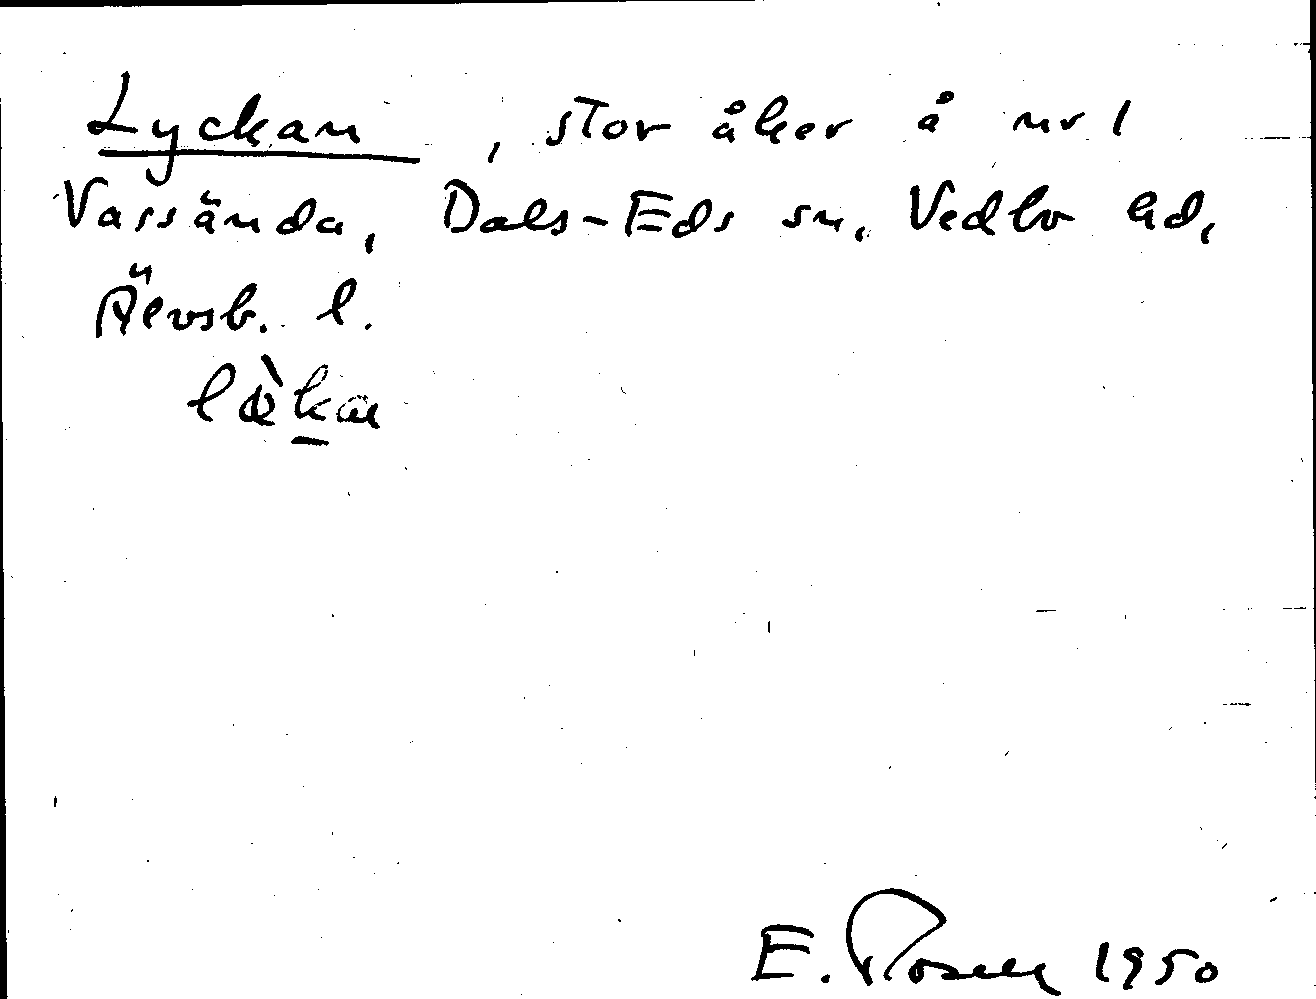 Lyckan, stor åker å nr 1
Vassända, Dals-Eds sn, Vedbo hd,
Älvsb. l.
E. Rosell 1950